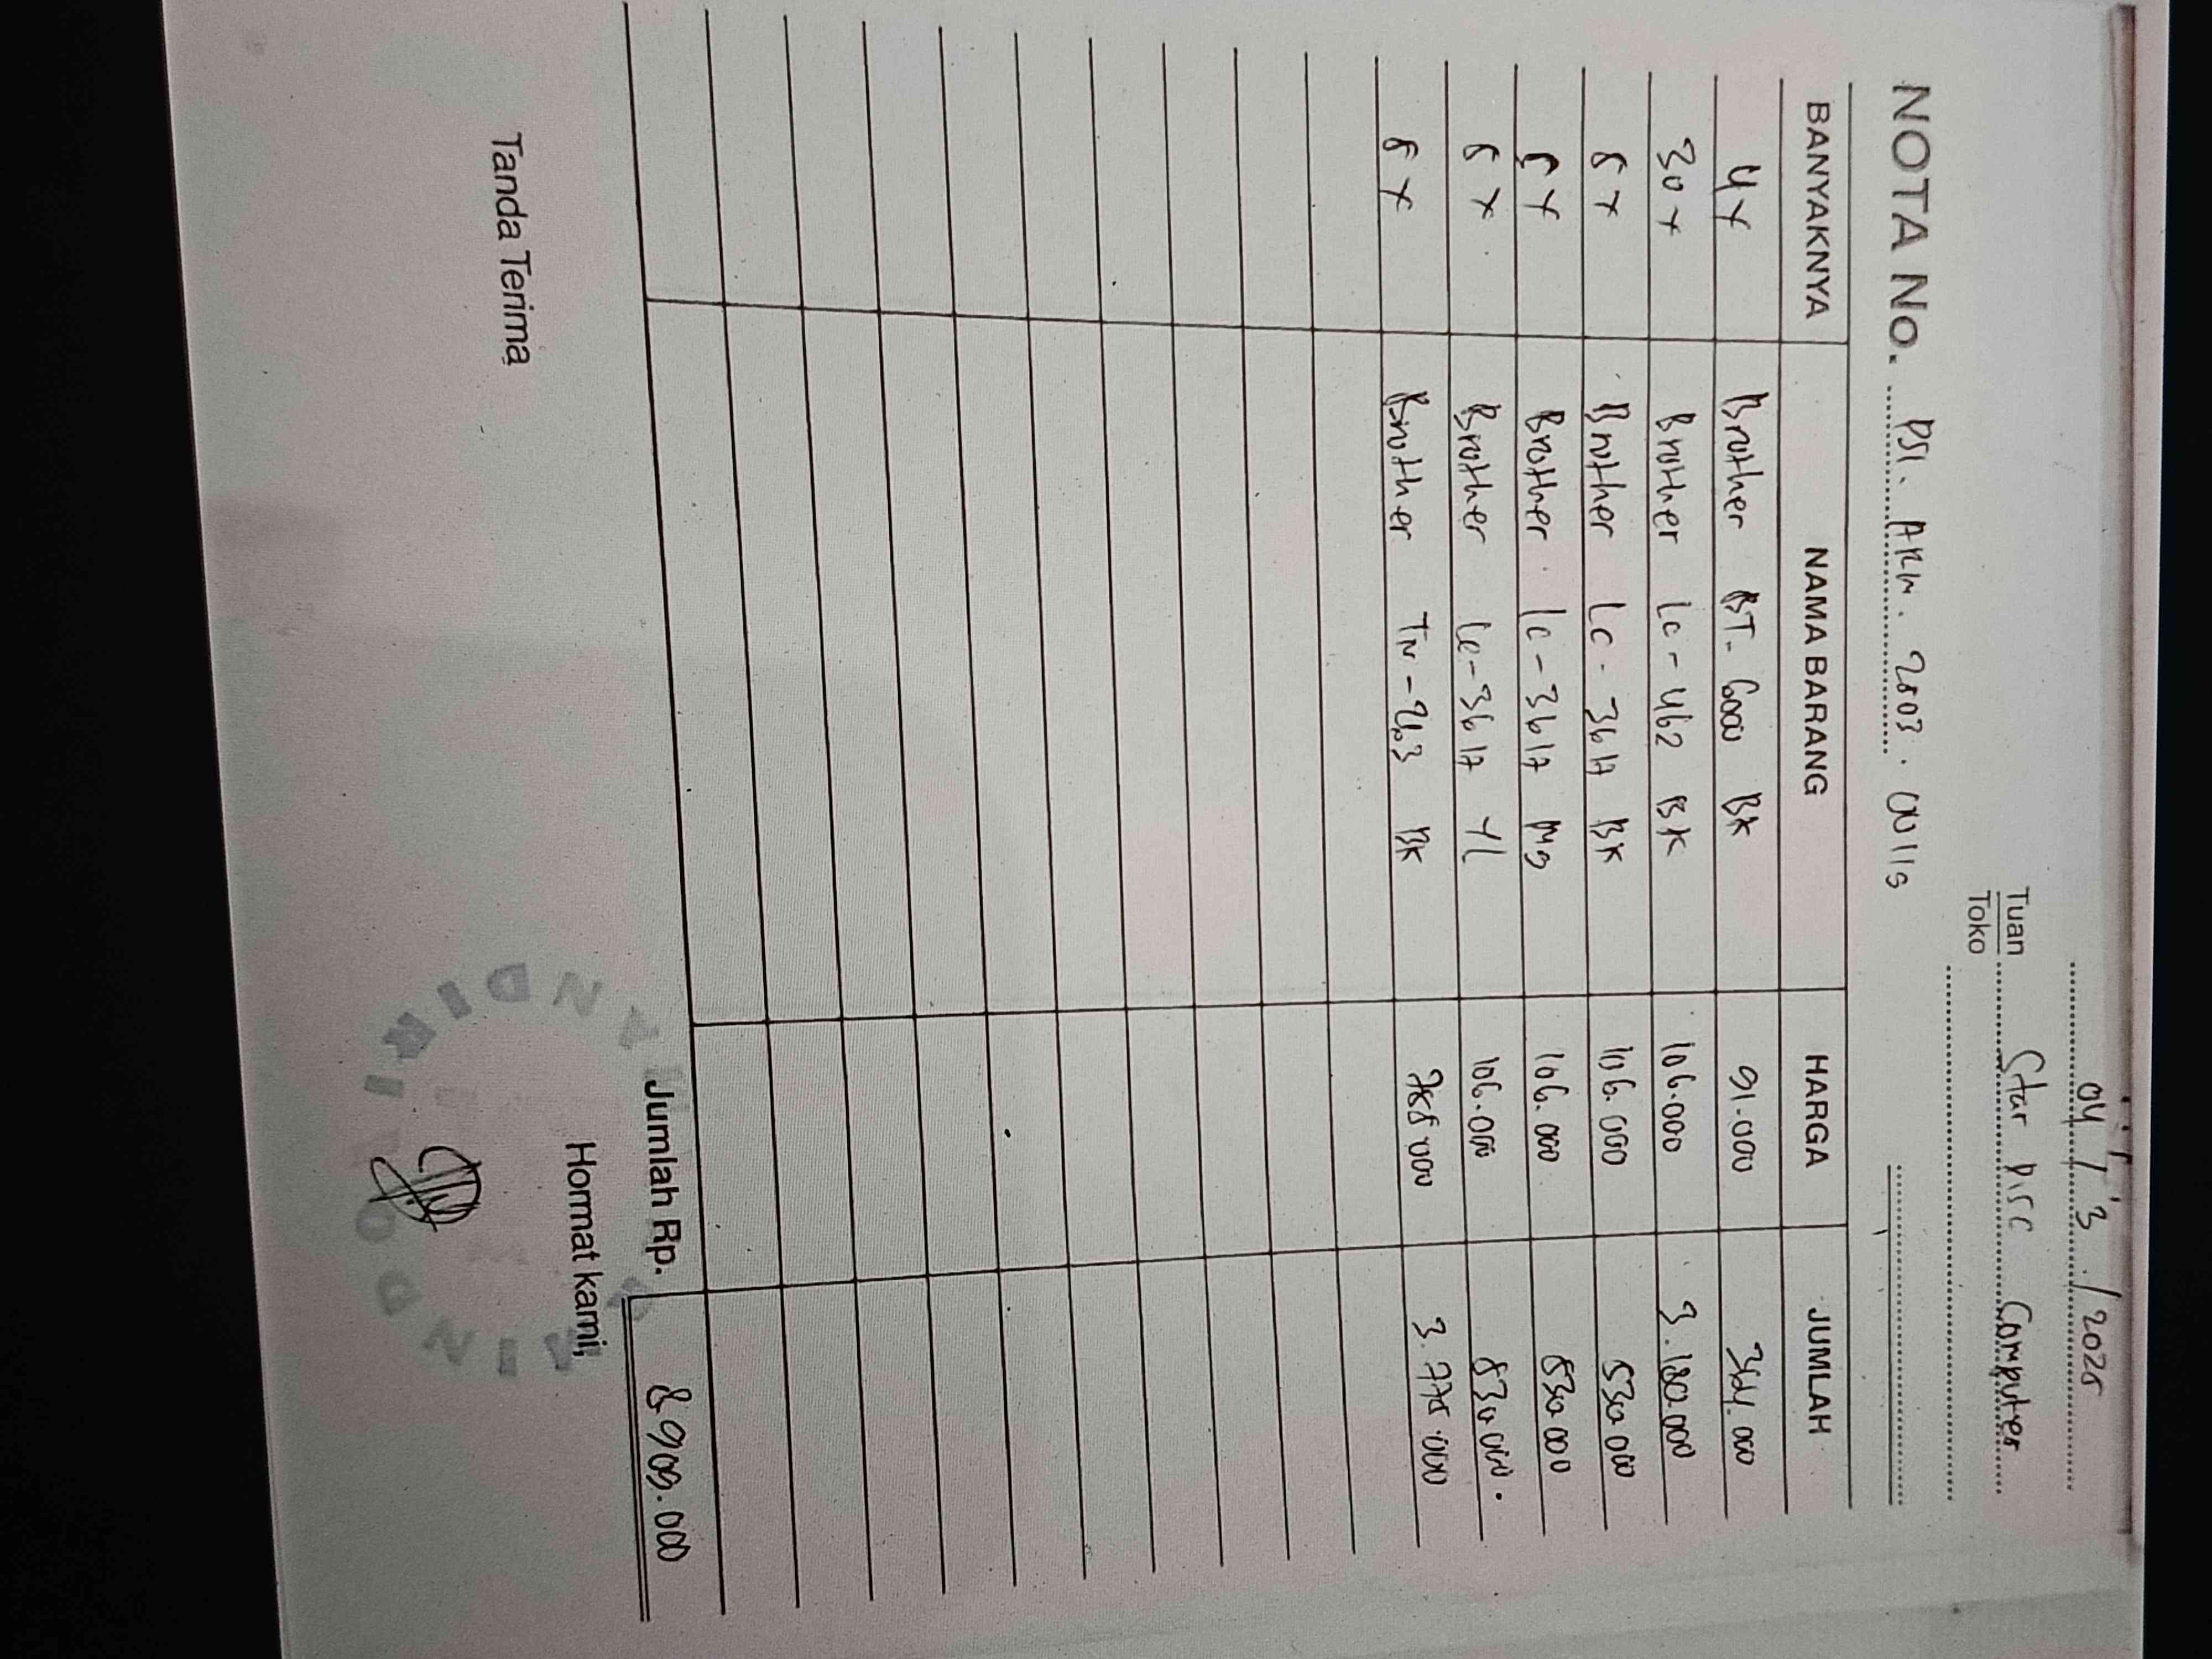 04 / 3 / 2025
Tuan
Toko
Star Disc Computer
NOTA No. PSI. ARM. 2503. 00115
BANYAKNYA NAMA BARANG HARGA JUMLAH
4 x Brother BT-6000 BK 91.000 364.000
30 x Brother Lc-462 BK 106.000 3.180.000
5 x Brother Lc-3617 BK 106.000 530.000
5 x Brother Lc-3617 Mg 106.000 530.000
5 x Brother Lc-3617 YL 106.000 530.000
5 x Brother TN-263 BK 755.000 3.775.000
Jumlah Rp. 8.909.000
Tanda Terima Hormat kami,